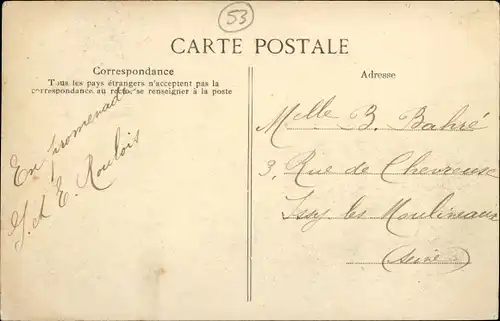 53
CARTE POSTALE
Correspondance
Tous les pays étrangers n'acceptent pas la
correspondance au recto, se renseigner à la poste
En promenade
J. et E. Roulois
Adresse
Melle B. Bahré
3, Rue de Chevreuse
Issy les Moulineaux
(Seine)